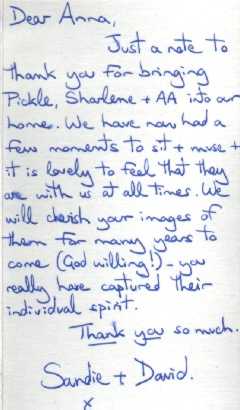 Dear Anna,
Just a note to
thank you for bringing
Pickle, Sharlene + AA into our
home. We have now had a
few moments to sit + muse +
it is lovely to feel that they
are with us at all times. We
will cherish your images of
them for many years to
come (God willing!) - you
really have captured their
individual spirit.
Thank you so much.
Sandie + David.
x